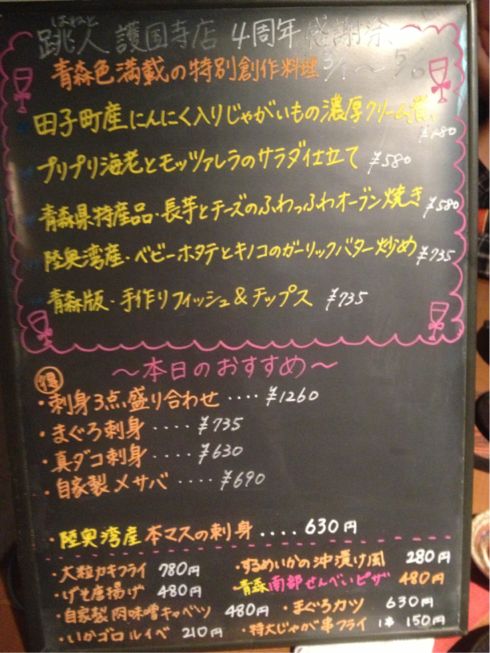 はねと
跳人 護国寺店 4周年 感謝祭
青森色満載の特別創作料理 3/1〜
田子町産にんにく入りじゃがいもの濃厚クリーム煮
プリプリ海老とモッツァレラのサラダ仕立て ¥580
青森県特産品・長芋とチーズのふわっふわオーブン焼き ¥580
陸奥湾産・ベビーホタテとキノコのガーリックバター炒め ¥735
青森版・手作りフィッシュ&チップス ¥735
〜本日のおすすめ〜
得
・刺身3点盛り合わせ ‥‥ ¥1260
・まぐろ刺身 ‥‥ ¥735
・真ダコ刺身 ‥‥ ¥630
・自家製〆サバ ‥‥ ¥690
・陸奥湾産 本マスの刺身 ‥‥ 630円
・大粒カキフライ 780円
・するめいかの沖漬け風 280円
・げそ唐揚げ 480円
青森南部せんべいピザ 480円
・自家製肉味噌キャベツ 480円
・まぐろカツ 630円
・いかゴロルイベ 210円
・特大じゃが串フライ 1本 150円